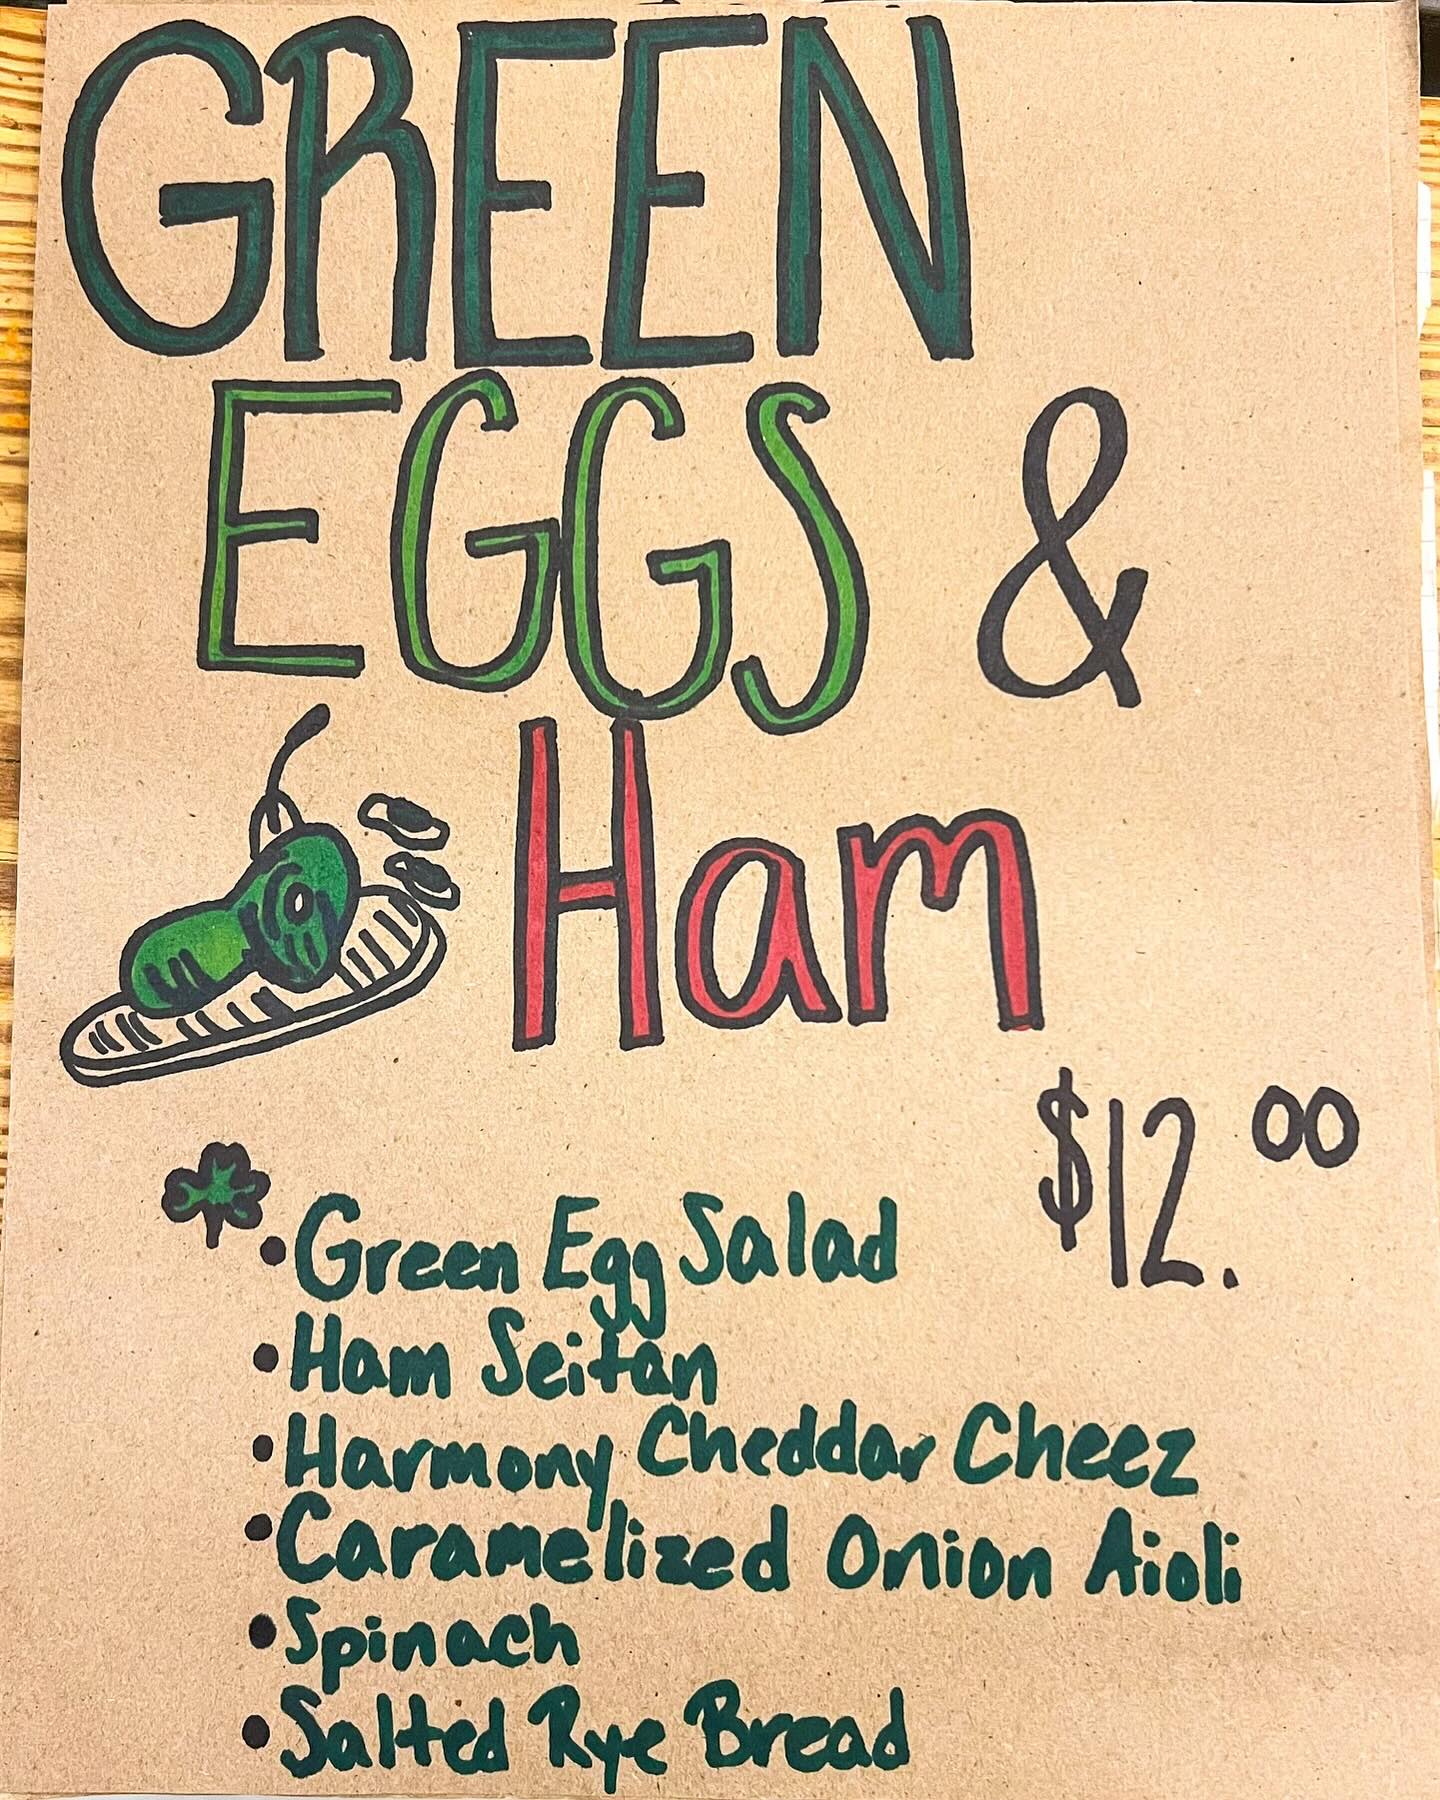 GREEN
EGGS &
Ham
$12.00
• Green Egg Salad
• Ham Seitan
• Harmony Cheddar Cheez
• Caramelized Onion Aioli
• Spinach
• Salted Rye Bread